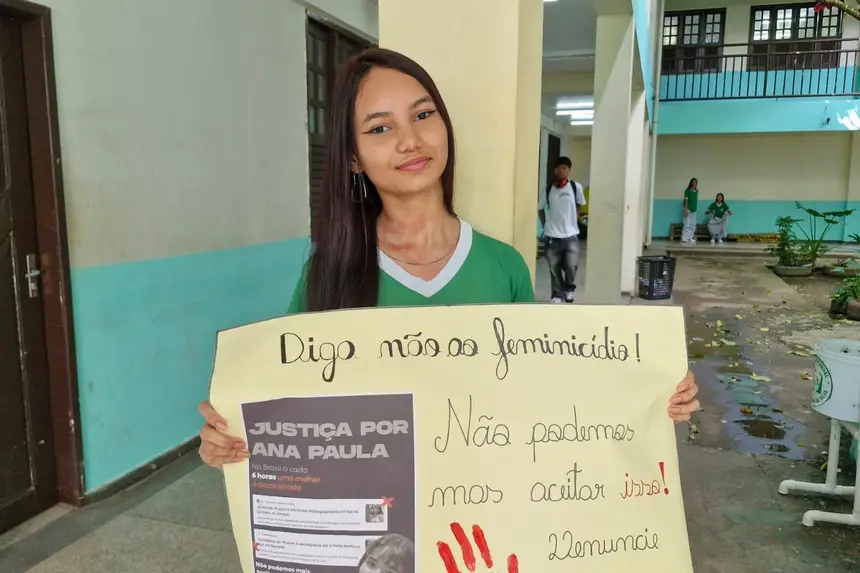 Diga não ao feminicídio!
JUSTIÇA POR
ANA PAULA
No Brasil a cada
6 horas uma mulher
é assassinada
Não podemos mais
Não podemos
mas aceitar isso!
Denuncie